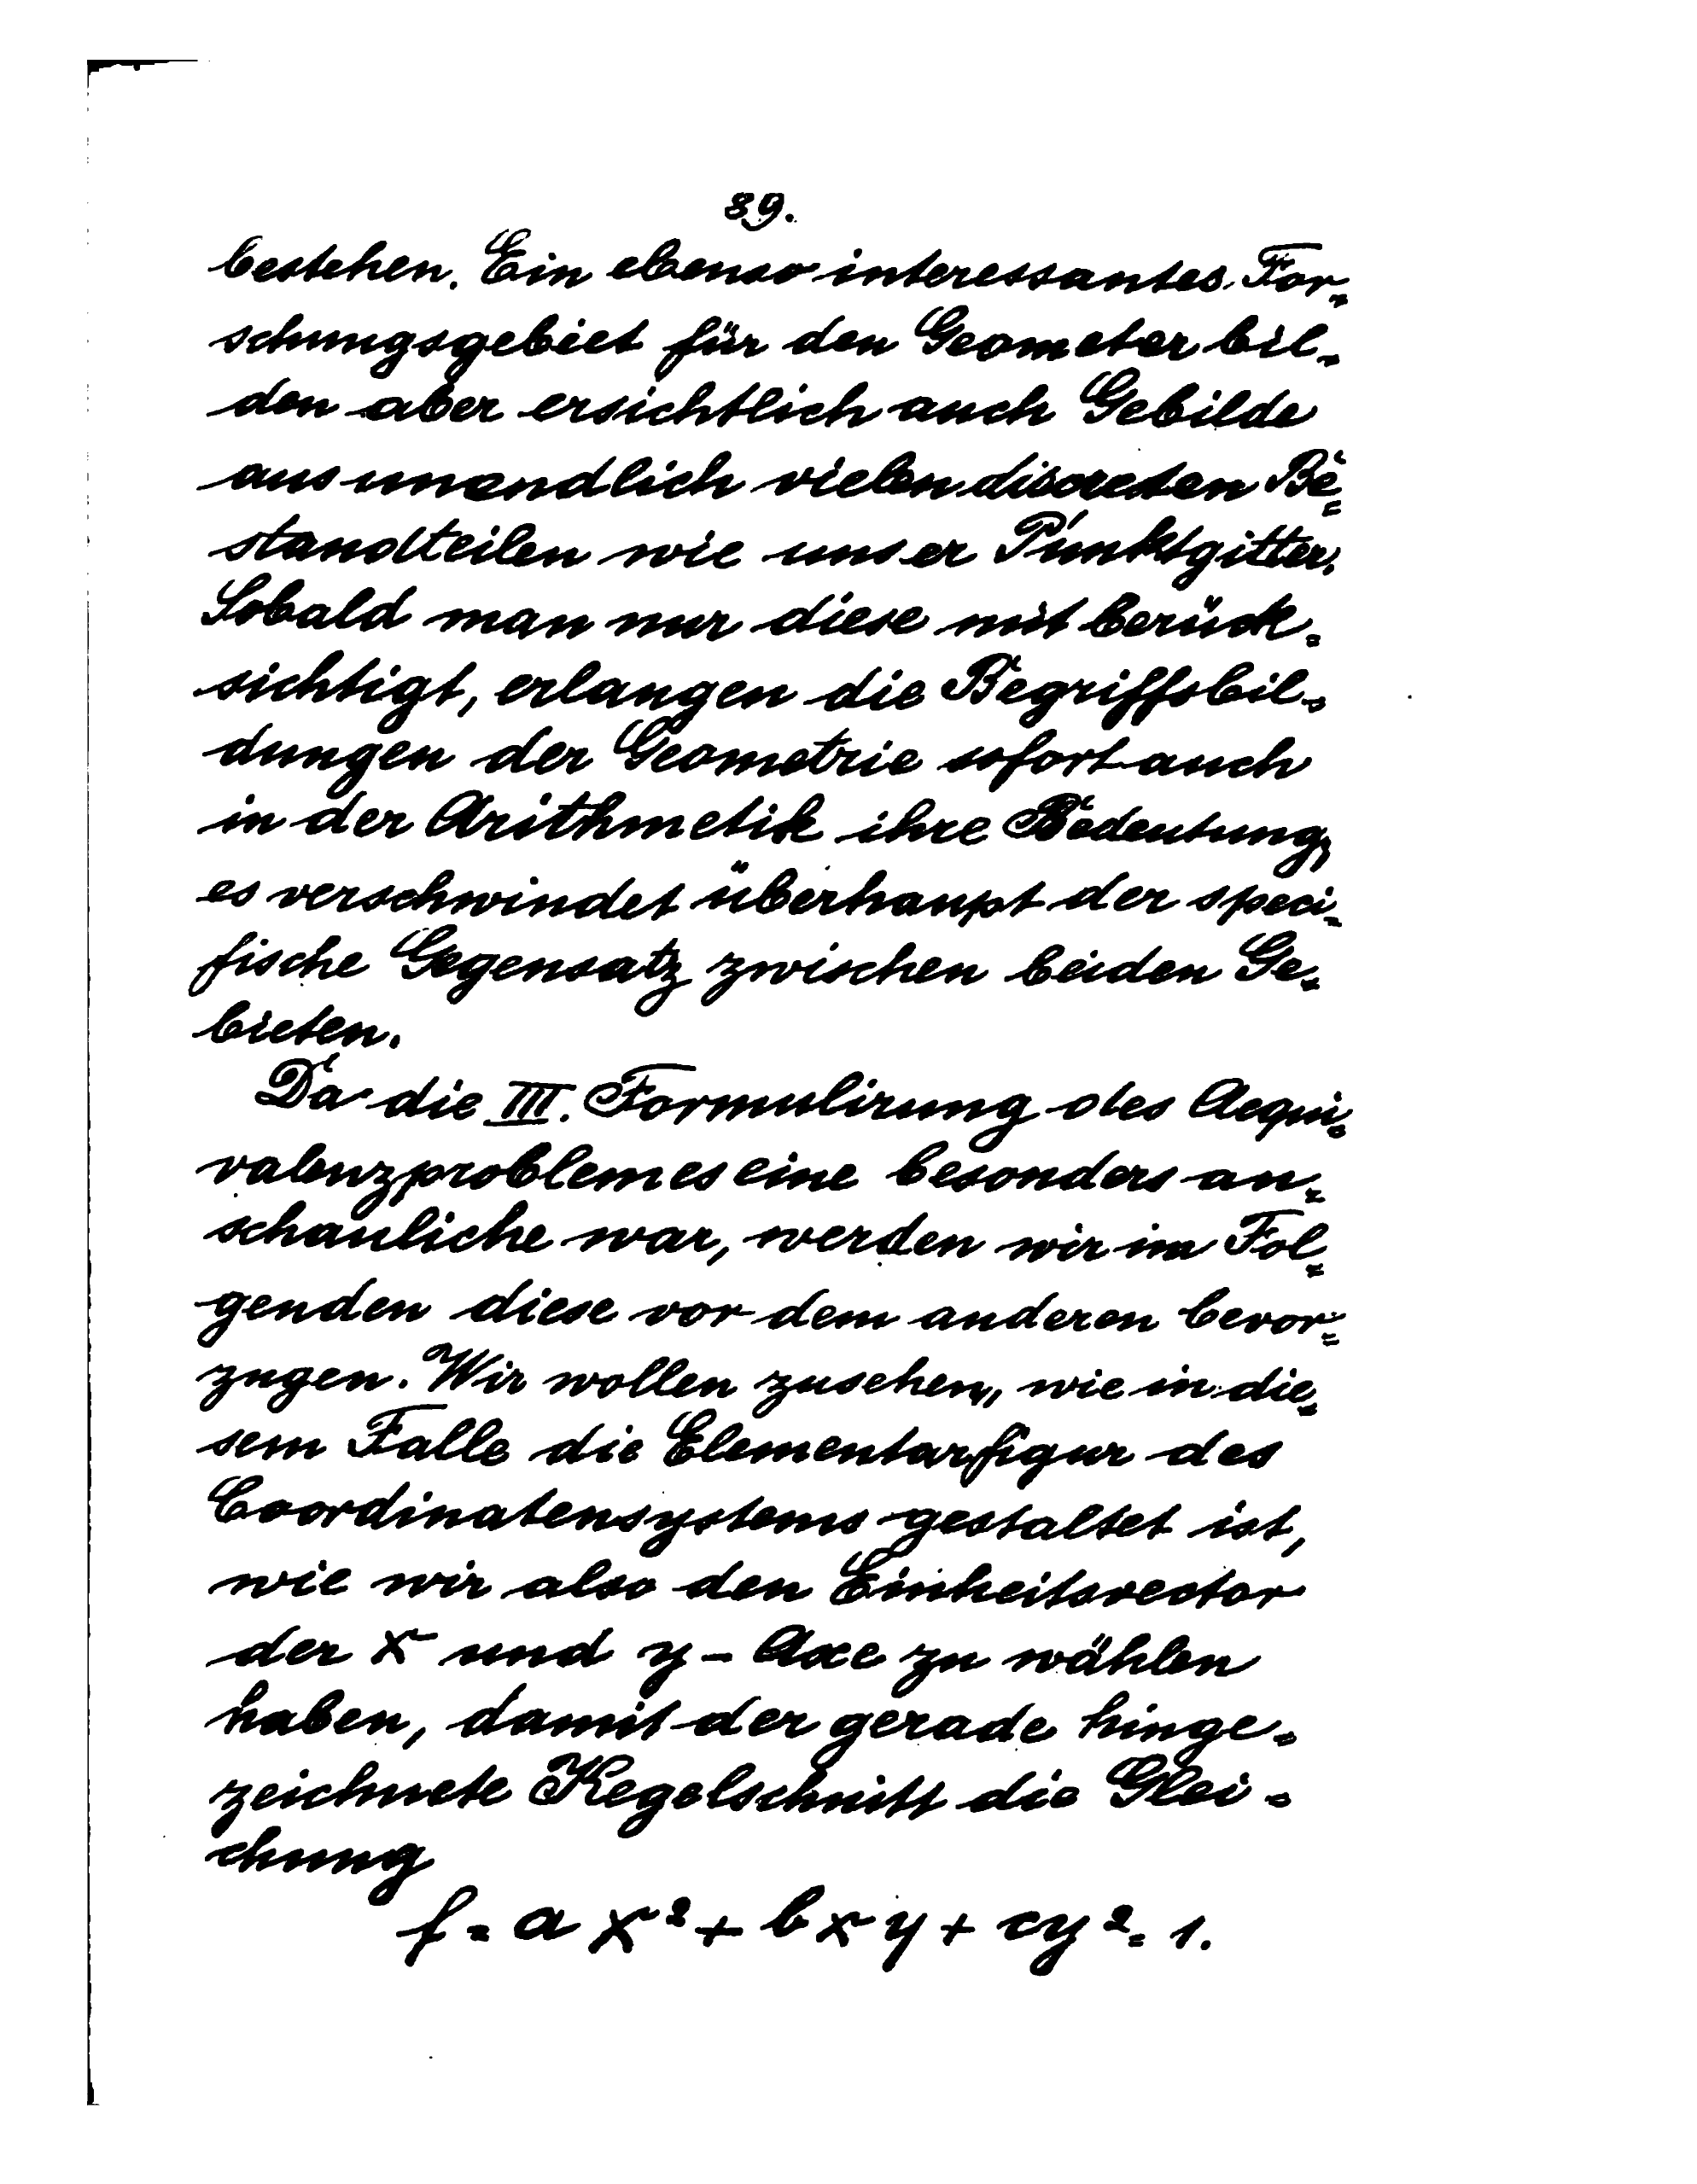 89.
bestehen. Ein ebenso interessantes For=
schungsgebiet für den Geometer bil=
den aber ersichtlich auch Gebilde
aus unendlich vielen discreten Be=
standteilen wie unser Punktgitter.
Sobald man nur diese mit berück=
sichtigt, erlangen die Begriffsbil=
dungen der Geometrie sofort auch
in der Arithmetik ihre Bedeutung,
es verschwindet überhaupt der speci=
fische Gegensatz zwischen beiden Ge=
bieten.
Da die III. Formulirung des Aequi=
valenzproblemes eine besonders an=
schauliche war, werden wir im Fol=
genden diese vor dem anderen bevor=
zugen. Wir wollen zusehen, wie in die=
sem Falle die Elementarfigur des
Coordinatensystems gestaltet ist,
wie wir also den Einheitsvector
der x und y - Axe zu wählen
haben, damit der gerade hinge=
zeichnete Kegelschnitt die Glei=
chung
f = a x² + b x y + c y² = 1.